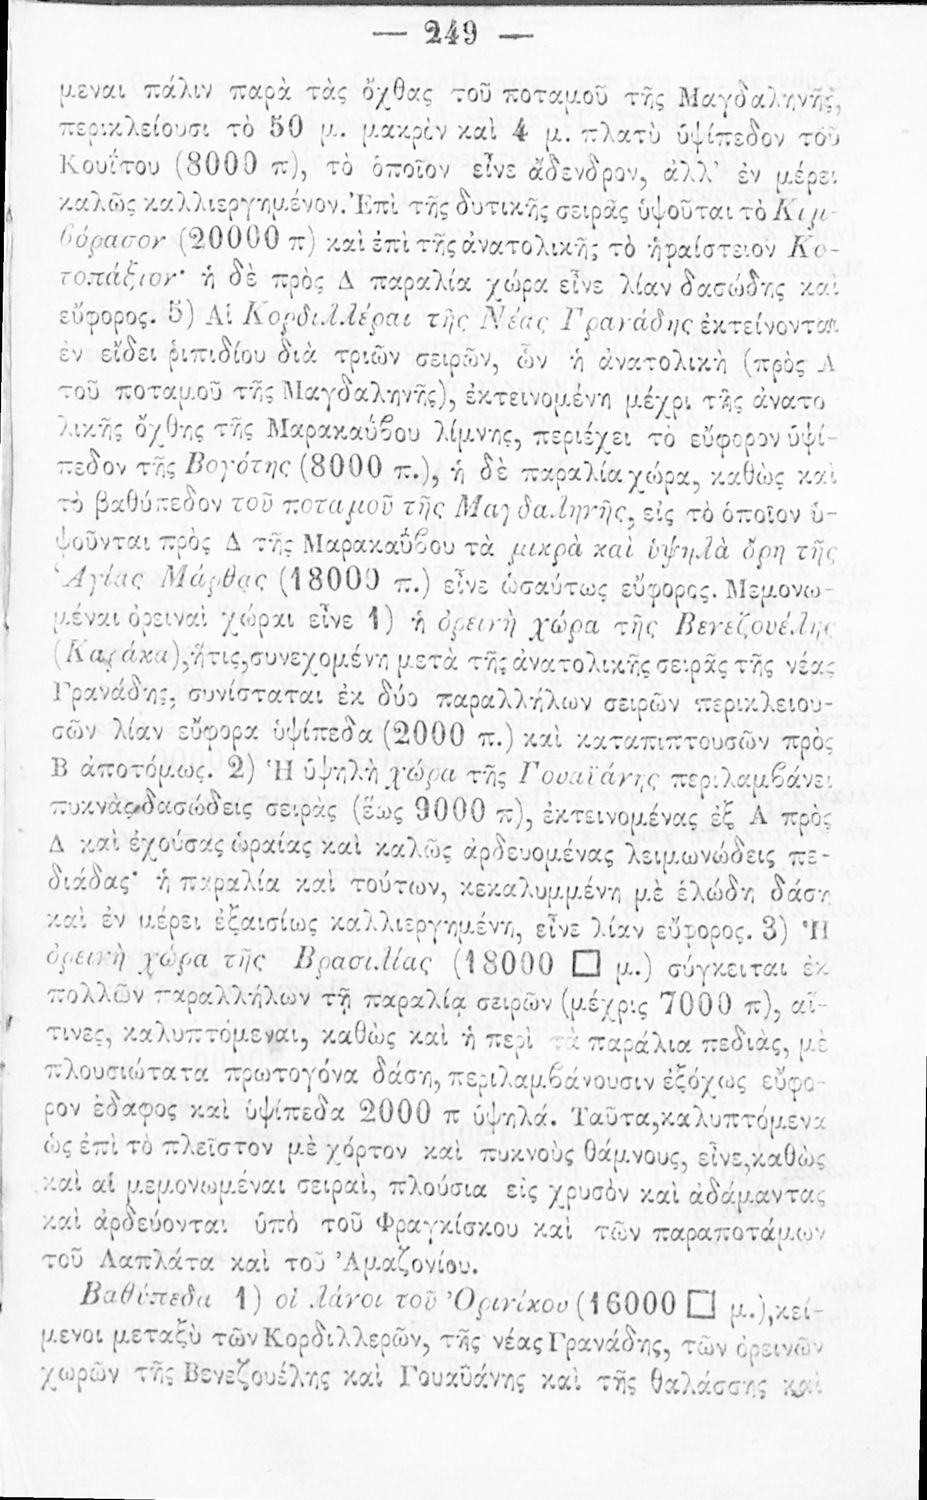 — 249 —
μεναι πάλιν παρὰ τὰς ὄχθας τοῦ ποταμοῦ τῆς Μαγδαληνῆς,
περικλείουσι τὸ 50 μ. μακρὸν καὶ 4 μ. πλατὺ ὑψίπεδον τοῦ
Κουΐτου (8000 π), τὸ ὁποῖον εἶνε ἄδενδρον, ἀλλ’ ἐν μέρει
καλῶς καλλιεργημένον. Ἐπὶ τῆς δυτικῆς σειρᾶς ὑψοῦται τὸ Κιμ-
βόρασον (20000 π) καὶ ἐπὶ τῆς ἀνατολικῆς τὸ ἡφαίστειον Κο-
τοπάξιον· ἡ δὲ πρὸς Δ παραλία χώρα εἶνε λίαν δασώδης καὶ
εὔφορος. 5) Αἱ Κορδιλλέραι τῆς Νέας Γρανάδης ἐκτείνονται
ἐν εἴδει ῥιπιδίου διὰ τριῶν σειρῶν, ὧν ἡ ἀνατολικὴ (πρὸς Α
τοῦ ποταμοῦ τῆς Μαγδαληνῆς), ἐκτεινομένη μέχρι τῆς ἀνατο
λικῆς ὄχθης τῆς Μαρακαΰβου λίμνης, περιέχει τὸ εὔφορον ὑψί-
πεδον τῆς Βογότης (8000 π.), ἡ δὲ παραλία χώρα, καθὼς καὶ
τὸ βαθύπεδον τοῦ ποταμοῦ τῆς Μαγδαληνῆς, εἰς τὸ ὁποῖον ὑ-
ψοῦνται πρὸς Δ τῆς Μαρακαΰβου τὰ μικρὰ καὶ ὑψηλὰ ὄρη τῆς
Ἁγίας Μάρθας (18000 π.) εἶνε ὡσαύτως εὔφορος. Μεμονω-
μέναι ὀρειναὶ χώραι εἶνε 1) ἡ ὀρεινὴ χώρα τῆς Βενεζουέλης
(Καράκα), ἥτις, συνεχομένη μετὰ τῆς ἀνατολικῆς σειρᾶς τῆς νέας
Γρανάδης, συνίσταται ἐκ δύο παραλλήλων σειρῶν περικλειου-
σῶν λίαν εὔφορα ὑψίπεδα (2000 π.) καὶ καταπιπτουσῶν πρὸς
Β ἀποτόμως. 2) Ἡ ὑψηλὴ χώρα τῆς Γουαϊάνης περιλαμβάνει
πυκνὰς δασώδεις σειρὰς (ἕως 9000 π), ἐκτεινομένας ἐξ Α πρὸς
Δ καὶ ἐχούσας ὡραίας καὶ καλῶς ἀρδευομένας λειμωνώδεις πε-
διάδας· ἡ παραλία καὶ τούτων, κεκαλυμμένη μὲ ἑλώδη δάση
καὶ ἐν μέρει ἐξαισίως καλλιεργημένη, εἶνε λίαν εὔφορος. 3) Ἡ
ὀρεινὴ χώρα τῆς Βρασιλίας (18000 □ μ.) σύγκειται ἐκ
πολλῶν παραλλήλων τῇ παραλίᾳ σειρῶν (μέχρις 7000 π), αἵ-
τινες, καλυπτόμεναι, καθὼς καὶ ἡ περὶ τὰ παράλια πεδιὰς, μὲ
πλουσιώτατα πρωτογόνα δάση, περιλαμβάνουσιν ἐξόχως εὔφο-
ρον ἔδαφος καὶ ὑψίπεδα 2000 π ὑψηλά. Ταῦτα, καλυπτόμενα
ὡς ἐπὶ τὸ πλεῖστον μὲ χόρτον καὶ πυκνοὺς θάμνους, εἶνε, καθὼς
καὶ αἱ μεμονωμέναι σειραὶ, πλούσια εἰς χρυσὸν καὶ ἀδάμαντας
καὶ ἀρδεύονται ὑπὸ τοῦ Φραγκίσκου καὶ τῶν παραποτάμων
τοῦ Λαπλάτα καὶ τοῦ Ἀμαζονίου.
Βαθύπεδα 1) οἱ λάνοι τοῦ Ὀρινίκου (16000 □ μ.), κεί-
μενοι μεταξὺ τῶν Κορδιλλερῶν, τῆς νέας Γρανάδης, τῶν ὀρεινῶν
χωρῶν τῆς Βενεζουέλης καὶ Γουαϋάνης καὶ τῆς θαλάσσης καὶ